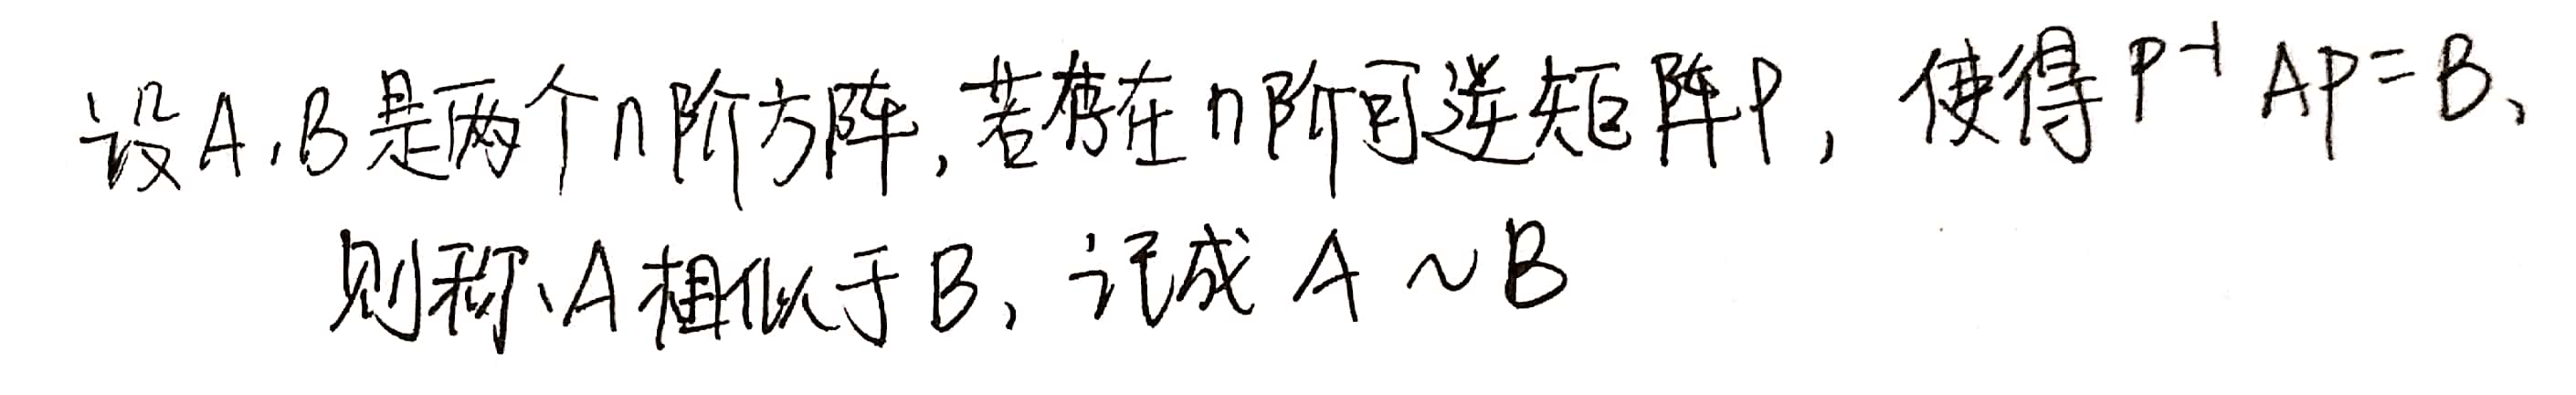 设A,B是两个n阶方阵,若存在n阶可逆矩阵P,使得P⁻¹AP=B,
则称A相似于B,记成A~B